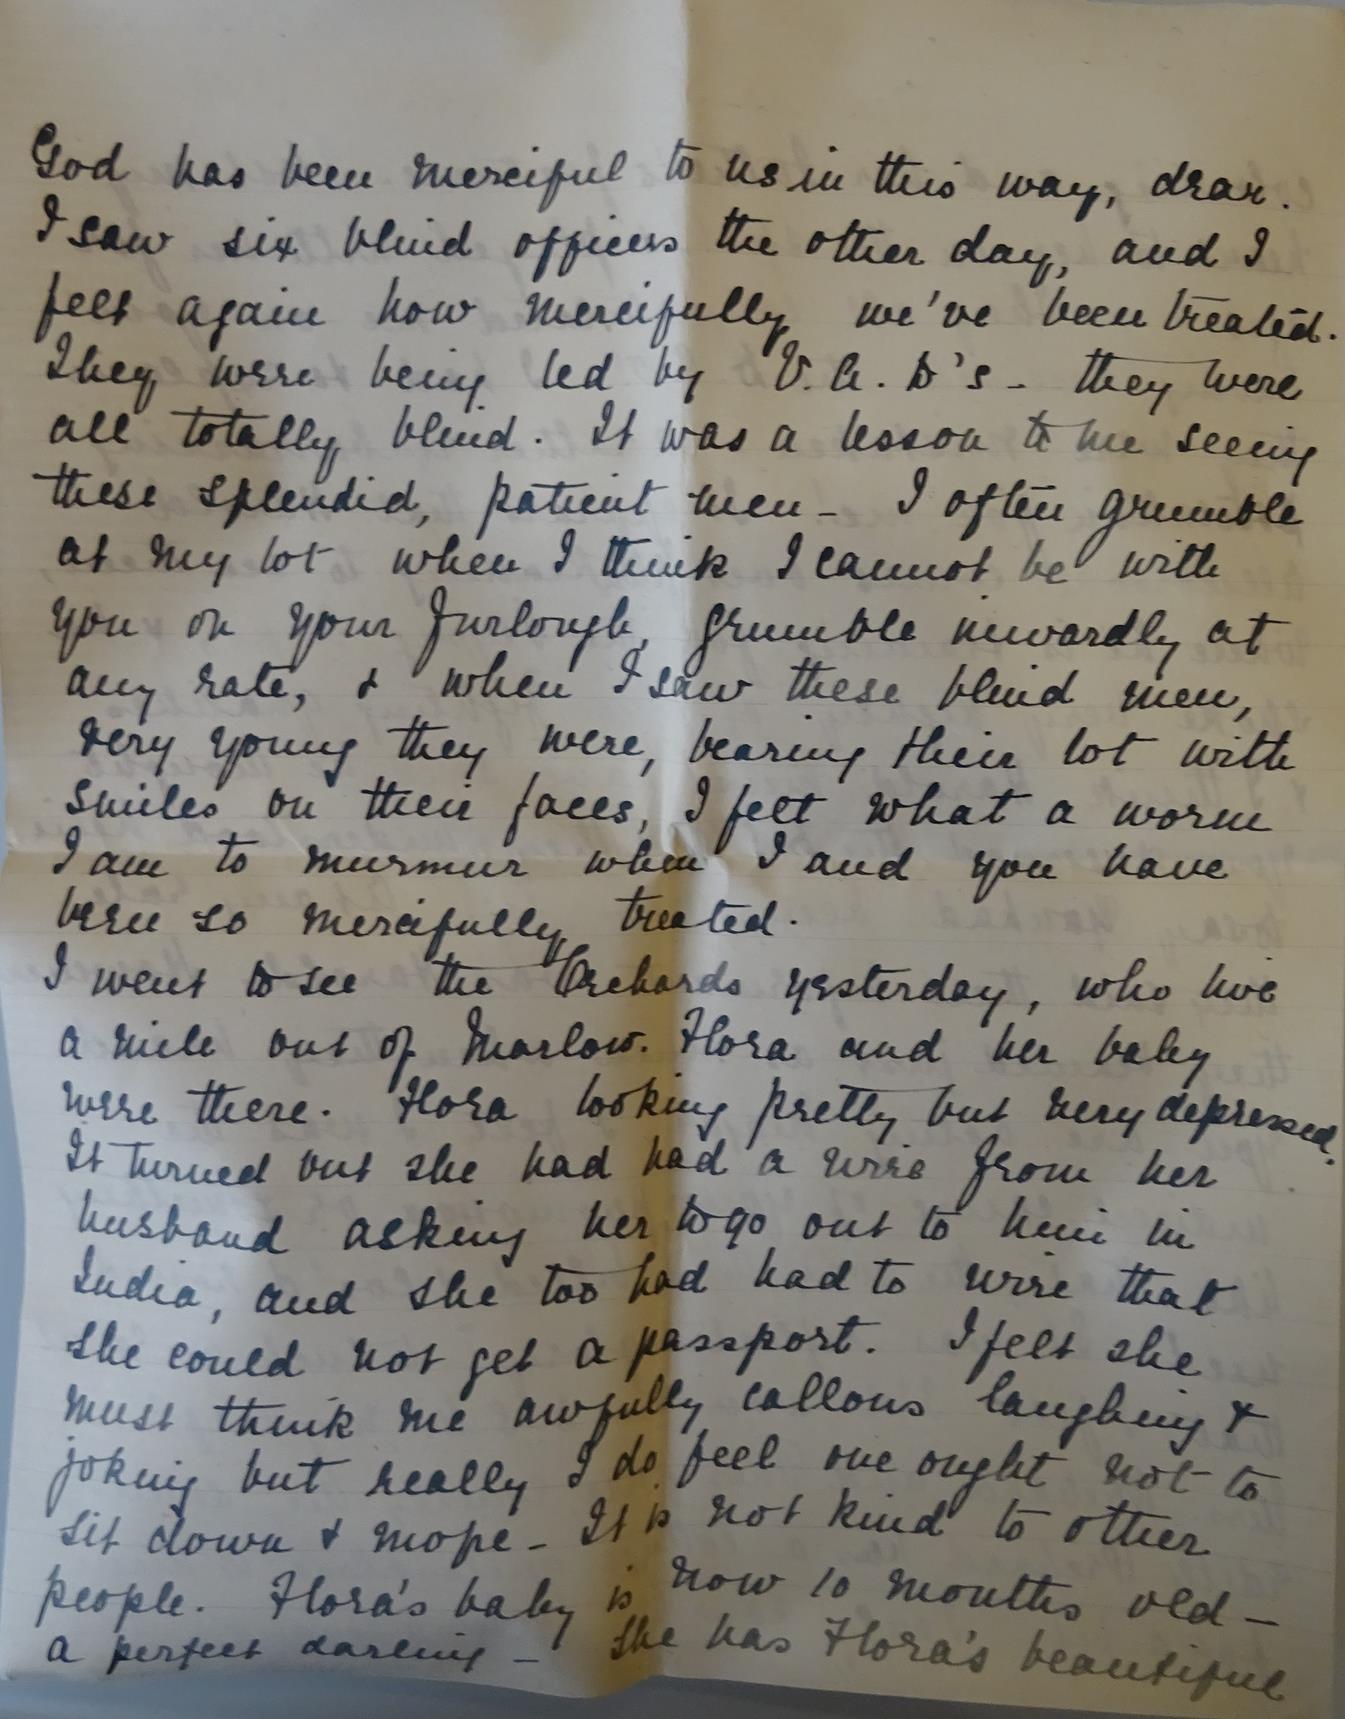 God has been merciful to us in this way, dear.
I saw six blind officers the other day, and I
felt again how mercifully we've been treated.
They were being led by V.A.D's - they were
all totally blind. It was a lesson to me seeing
these splendid, patient men - I often grumble
at my lot when I think I cannot be with
you on your furlough, grumble inwardly at
any rate, & when I saw these blind men,
very young they were, bearing their lot with
smiles on their faces, I felt what a worm
I am to murmur when I and you have
been so mercifully treated.
I went to see the Orchards yesterday, who live
a mile out of Marlow. Flora and her baby
were there. Flora looking pretty but very depressed.
It turned out she had had a wire from her
husband asking her to go out to him in
India, and she too had had to wire that
she could not get a passport. I felt she
must think me awfully callous laughing &
joking but really I do feel one ought not to
sit down & mope - It is not kind to other
people. Flora's baby is now 10 months old -
a perfect darling - She has Flora's beautiful